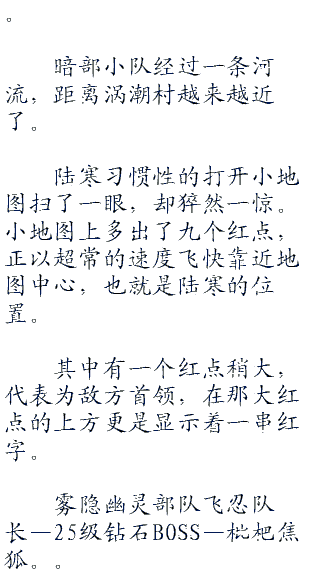 。
暗部小队经过一条河
流，距离涡潮村越来越近
了。
陆寒习惯性的打开小地
图扫了一眼，却猝然一惊。
小地图上多出了九个红点，
正以超常的速度飞快靠近地
图中心，也就是陆寒的位
置。
其中有一个红点稍大，
代表为敌方首领，在那大红
点的上方更是显示着一串红
字。
雾隐幽灵部队飞忍队
长—25级钻石BOSS—枇杷焦
狐。。